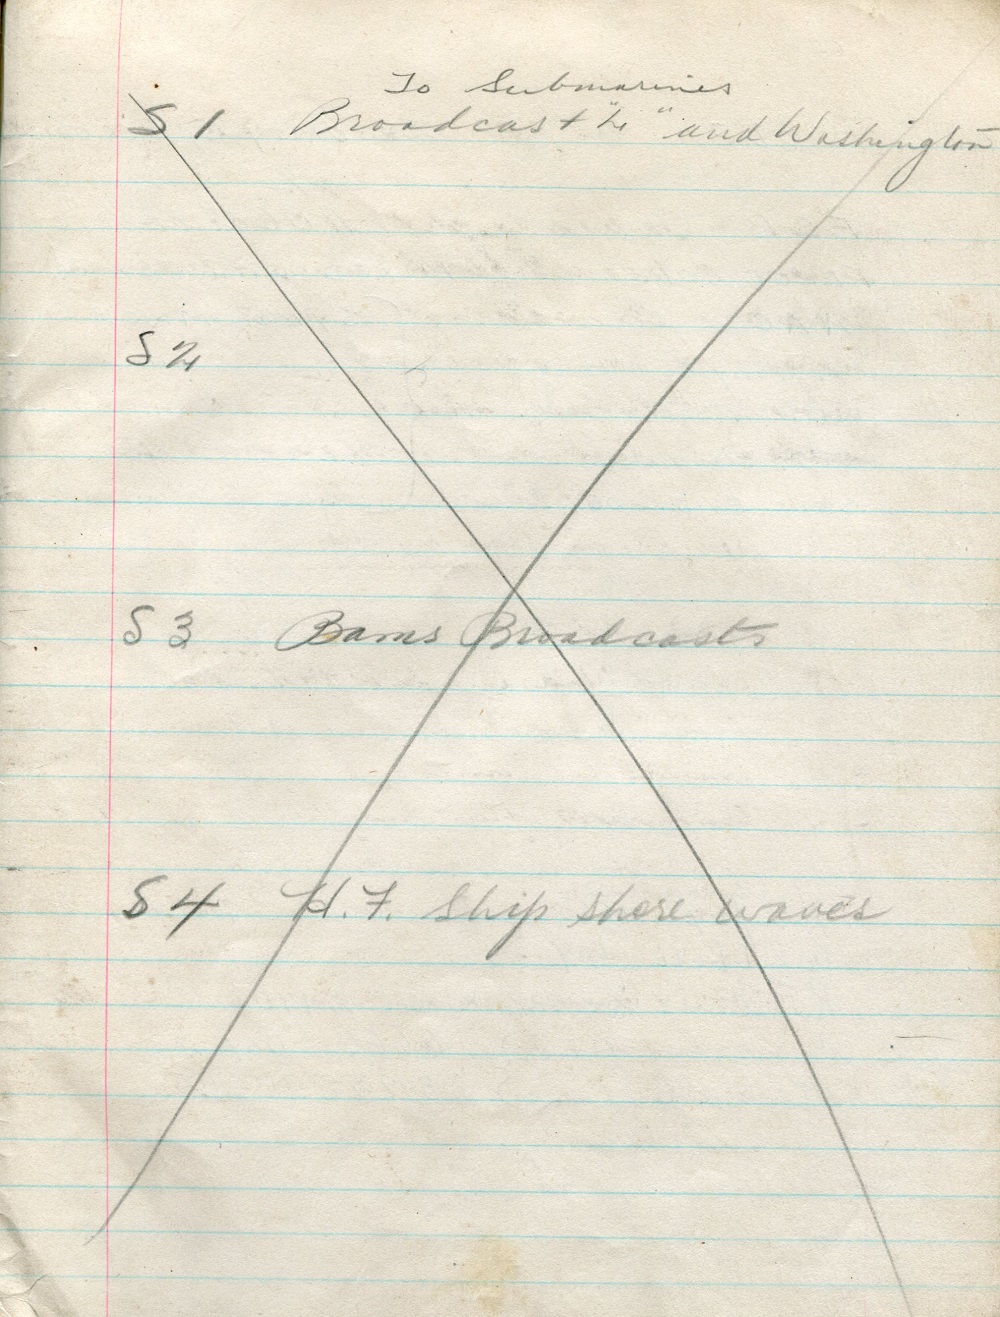 To Submarines
S 1 Broadcast "L" and Washington
S 2
S 3 Bams Broadcasts
S 4 H.F. Ship shore waves